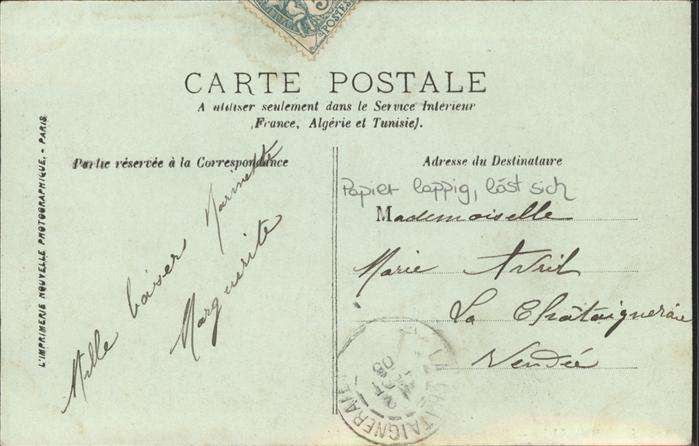 POSTES
CARTE POSTALE
A utiliser seulement dans le Service Intérieur
(France, Algérie et Tunisie).
Partie réservée à la Correspondance
Adresse du Destinataire
L'IMPRIMERIE NOUVELLE PHOTOGRAPHIQUE. - PARIS.
Mille baiser Marinette
Marguerite
Papier lappig, löst sich
Mademoiselle
Marie Avril
La Châtaigneraie
Vendée
LA CHATAIGNERAIE